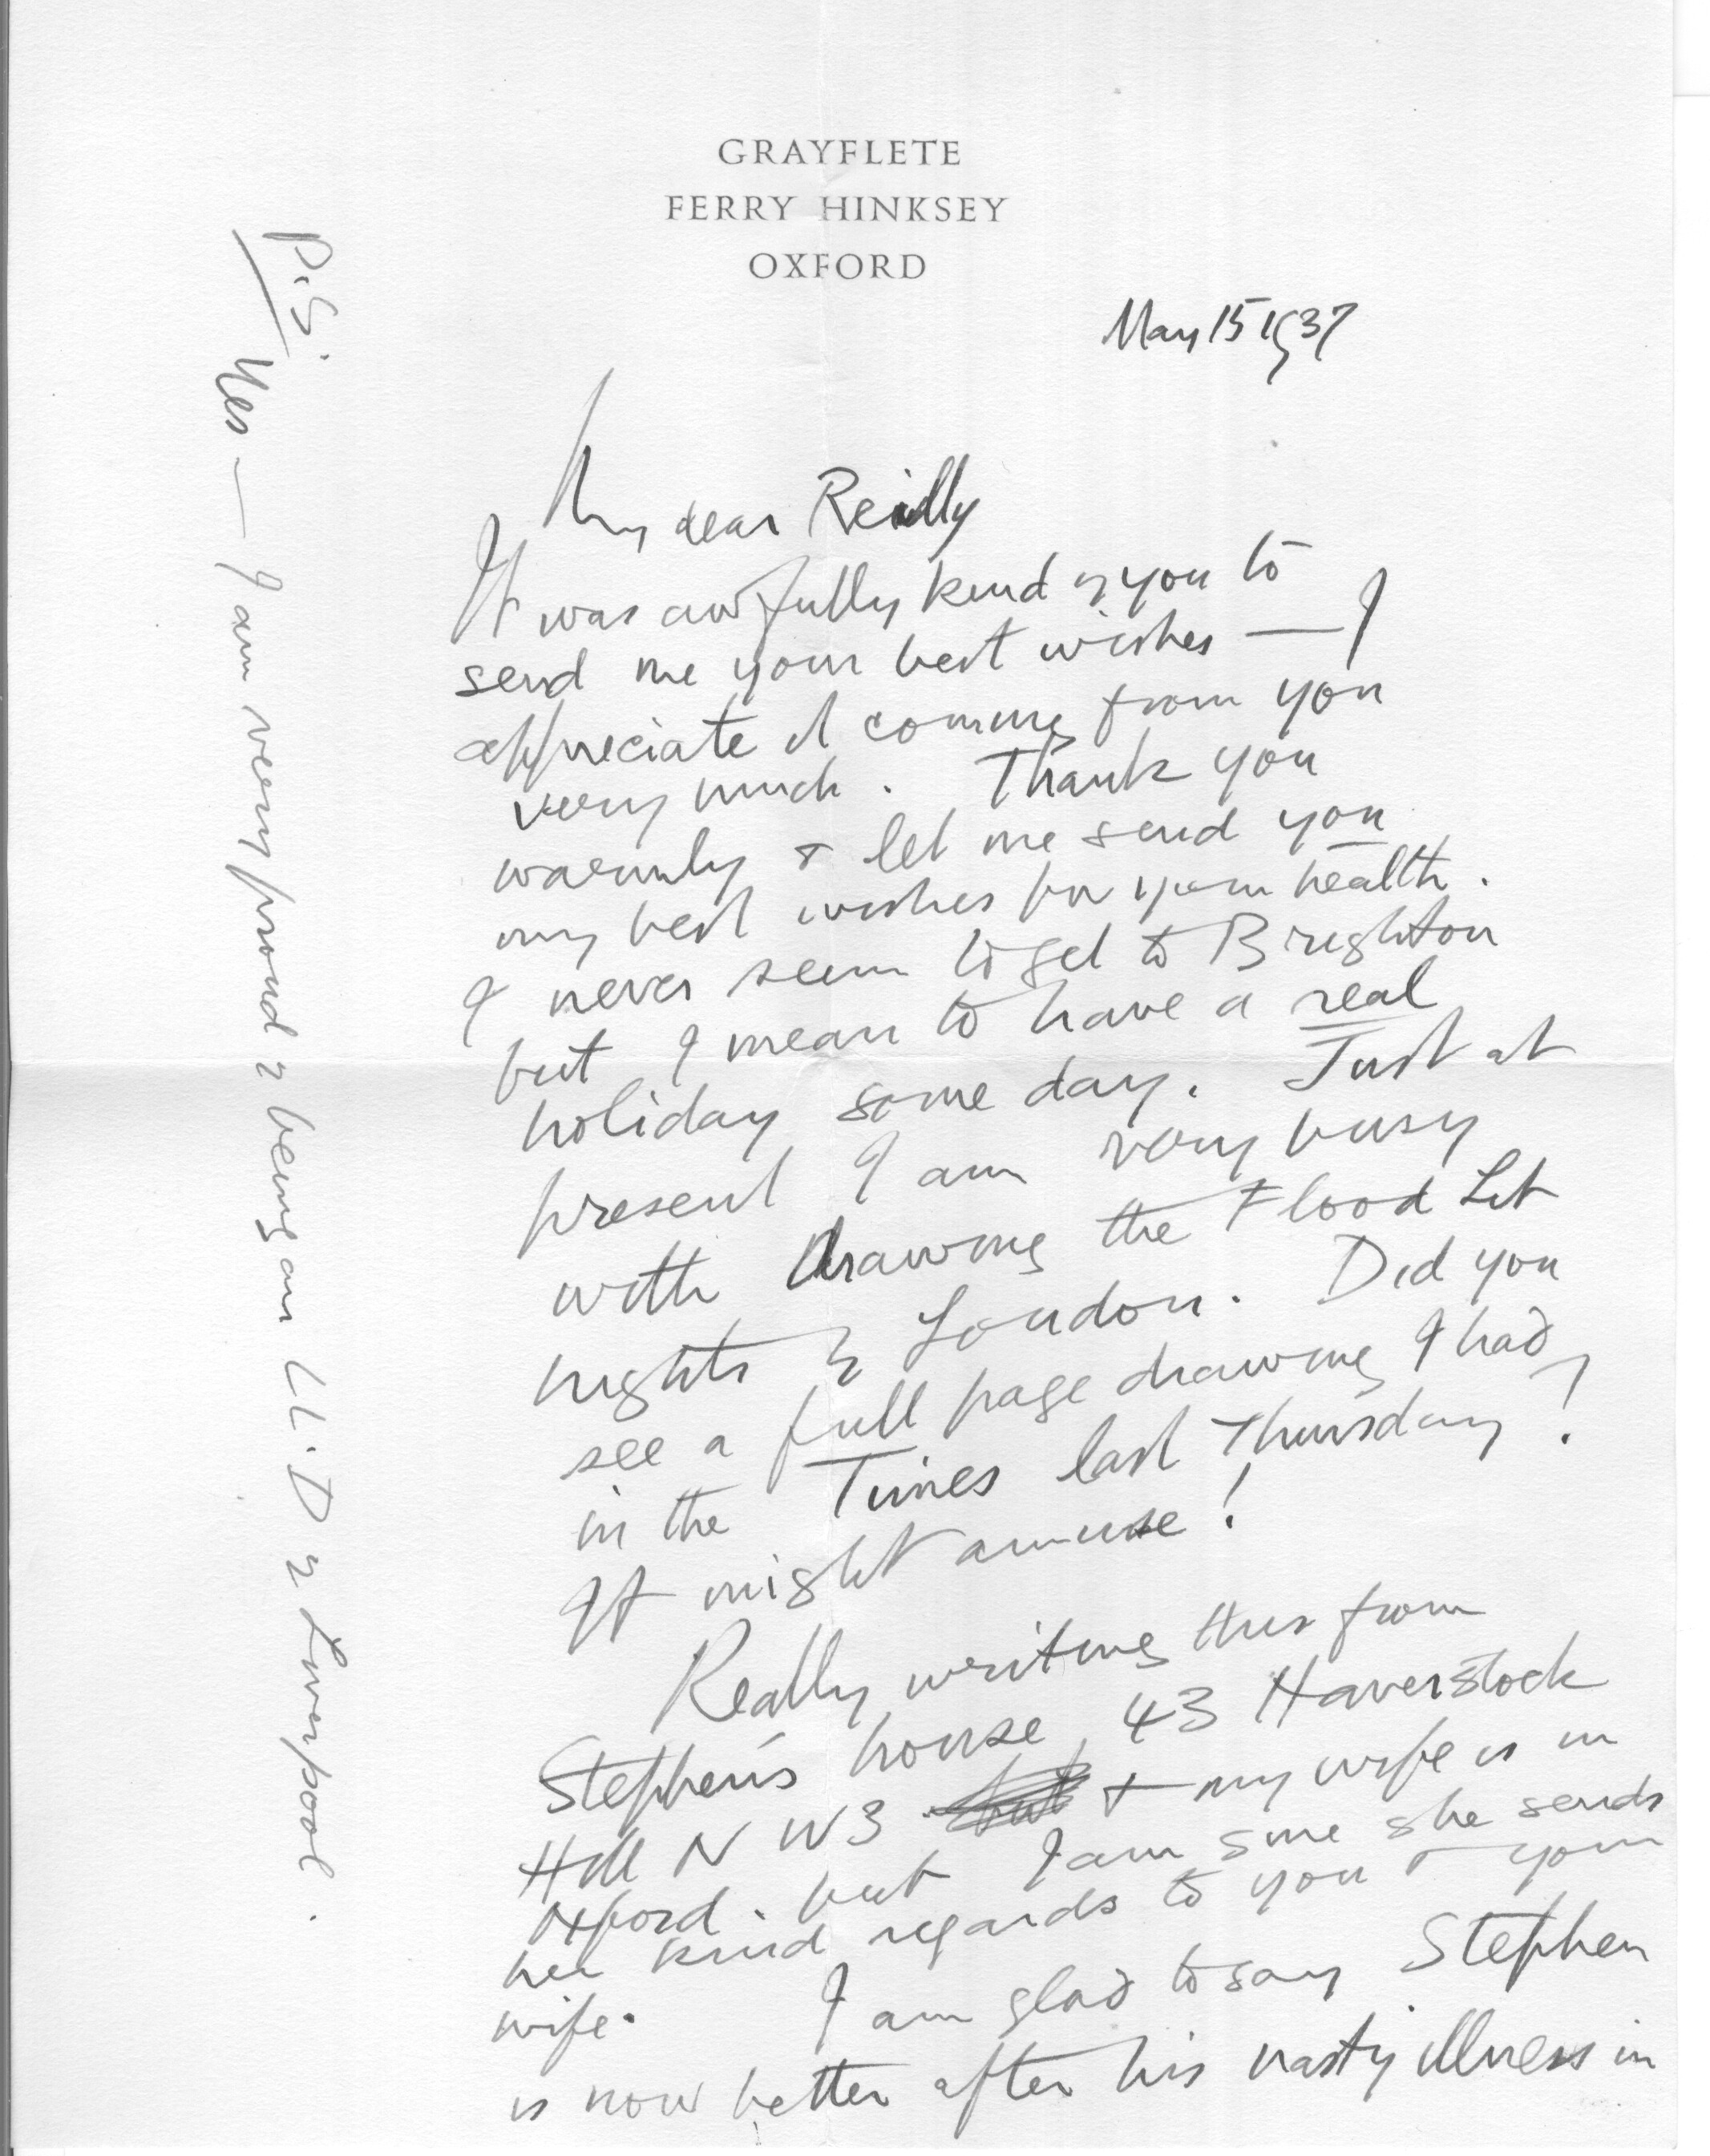 GRAYFLETE
FERRY HINKSEY
OXFORD
May 15 1937
My dear Reilly
It was awfully kind of you to
send me your best wishes — I
appreciate it coming from you
very much. Thank you
warmly & let me send you
my best wishes for your health.
I never seem to get to Brighton
but I mean to have a real
holiday some day. Just at
present I am very busy
with drawing the Flood Lit
nights of London. Did you
see a full page drawing I had
in the Times last Thursday?
It might amuse!
Really writing this from
Stephen's house, 43 Haverstock
Hill N W 3 but & my wife is in
Oxford. but I am sure she sends
her kind regards to you & your
wife. I am glad to say Stephen
is now better after his nasty illness in
P.S. Yes — I am very proud of being an LL.D of Liverpool.